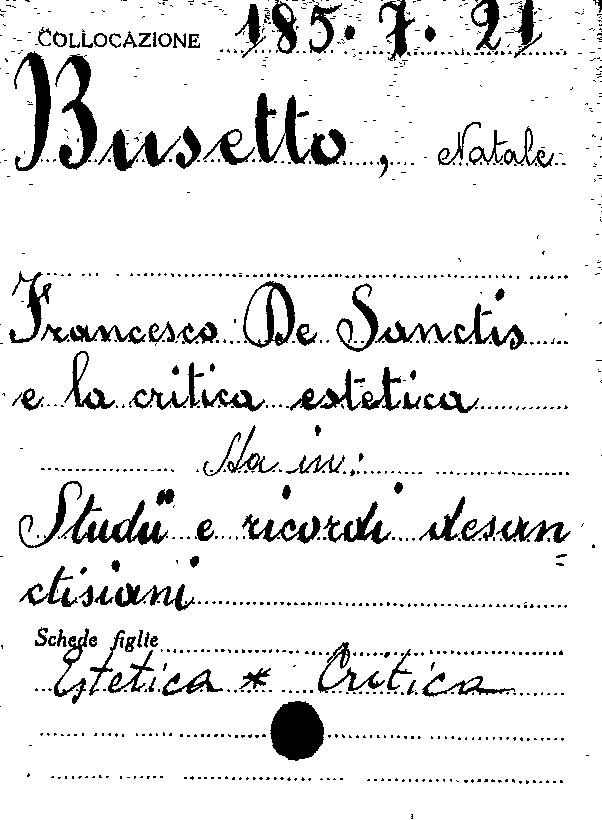 COLLOCAZIONE 185. 7. 21
Busetto, Natale
Francesco De Sanctis
e la critica estetica
Sta in:
Studii e ricordi desan=
ctisiani
Schede figlie
Estetica * Critica